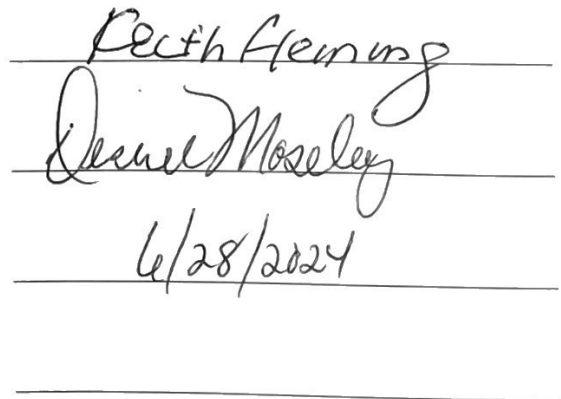 Keith Fleming
Moseley
6/28/2024